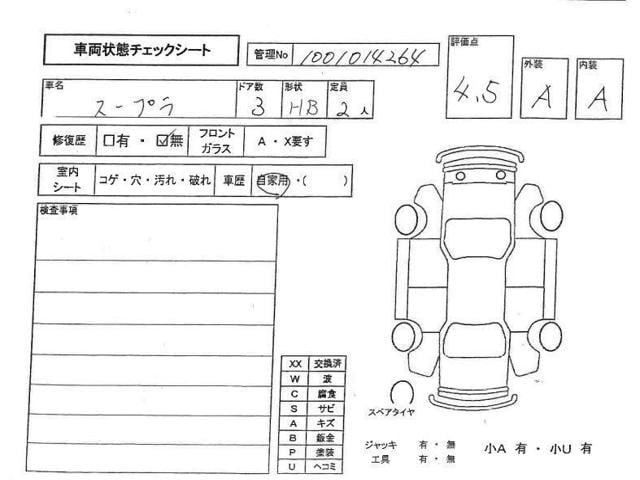 車両状態チェックシート
管理No 1001014264
評価点 4.5
外装 A
内装 A
車名 スープラ
ドア数 3
形状 HB
定員 2人
修復歴 □有・☑無
フロントガラス A・X要す
室内シート コゲ・穴・汚れ・破れ
車歴 自家用・( )
検査事項
XX 交換済
W 波
C 腐食
S サビ
A キズ
B 鈑金
P 塗装
U ヘコミ
スペアタイヤ
ジャッキ 有・無
工具 有・無
小A 有・小U 有